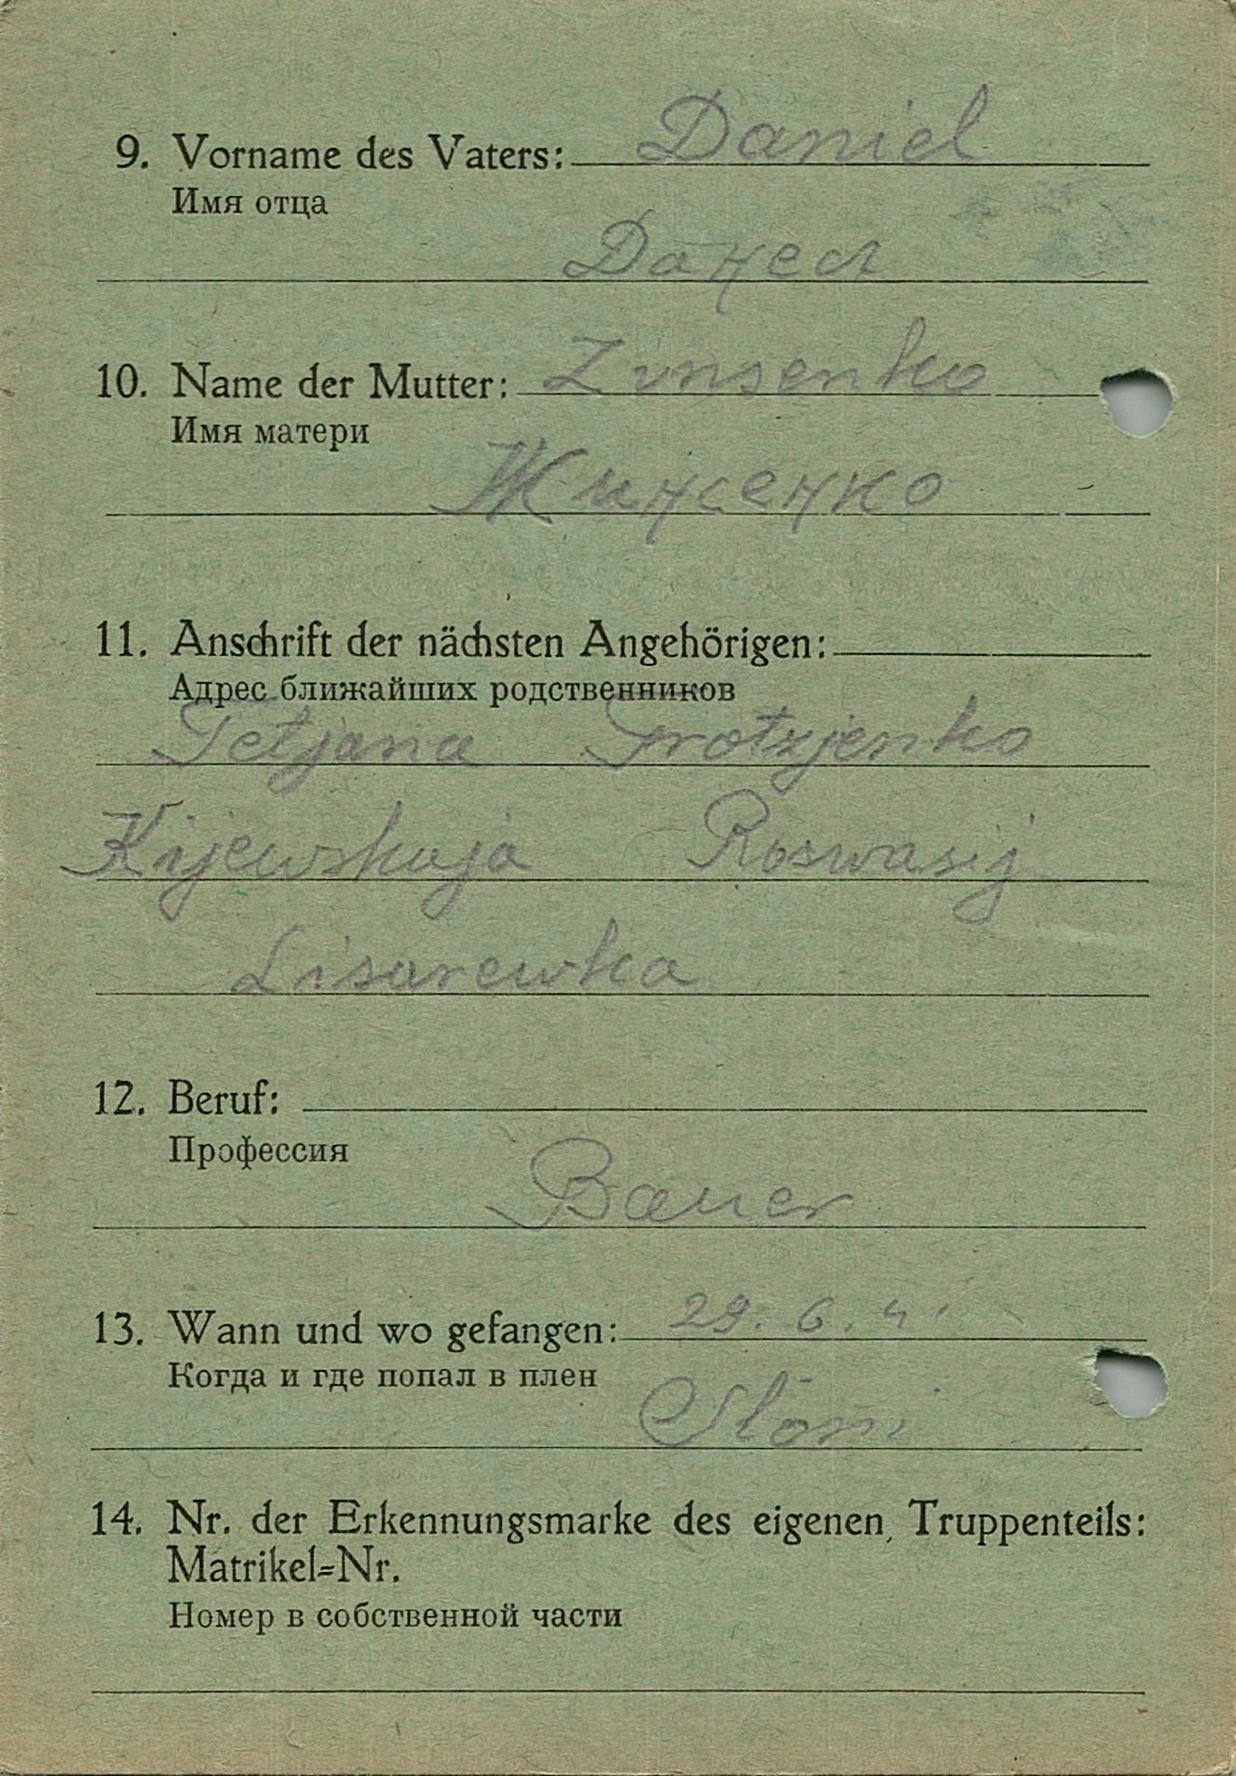 9. Vorname des Vaters: Daniel
Имя отца
Данел
10. Name der Mutter: Zinsenko
Имя матери
Жинсенко
11. Anschrift der nächsten Angehörigen:
Адрес ближайших родственников
Tetjana Trotzjenko
Kijewskaja Roswasij
Lisarewka
12. Beruf:
Профессия
Bauer
13. Wann und wo gefangen: 29. 6. 41
Когда и где попал в плен
14. Nr. der Erkennungsmarke des eigenen Truppenteils:
Matrikel=Nr.
Номер в собственной части